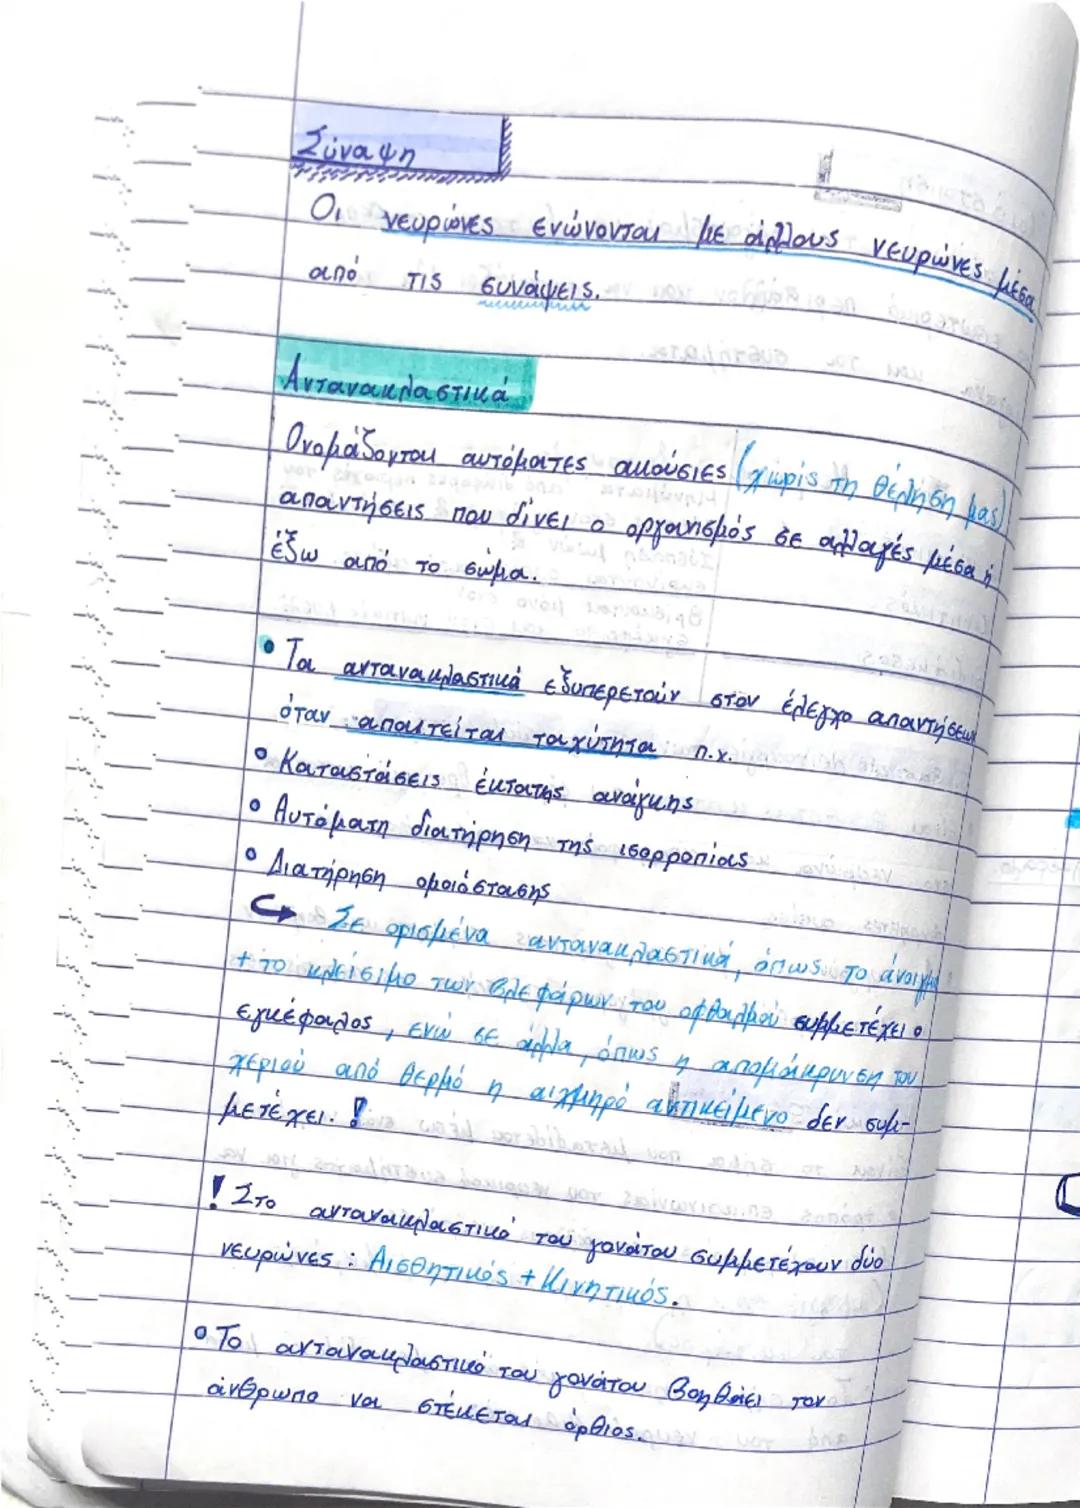 Σύναψη
Οι νευρώνες ενώνονται με άλλους νευρώνες μέσα
από τις συνάψεις.
Αντανακλαστικά
Ονομάζονται αυτόματες ακούσιες (χωρίς τη θέληση μας)
απαντήσεις που δίνει ο οργανισμός σε αλλαγές μέσα ή
έξω από το σώμα.
• Τα αντανακλαστικά εξυπερετούν στον έλεγχο απαντήσεων
όταν απαιτείται ταχύτητα π.χ.
• Καταστάσεις έκτατης ανάγκης
• Αυτόματη διατήρηση της ισορροπίας
• Διατήρηση ομοιόστασης
↪ Σε ορισμένα αντανακλαστικά, όπως το άνοιγμα
+ το κλείσιμο των βλεφάρων του οφθαλμού συμμετέχει ο
εγκέφαλος, ενώ σε άλλα, όπως η απομάκρυνση του
χεριού από θερμό η αιχμηρό αντικείμενο δεν συμ-
μετέχει. !
! Στο αντανακλαστικό του γονάτου συμμετέχουν δύο
νευρώνες : Αισθητικός + Κινητικός.
• Το αντανακλαστικό του γονάτου βοηθάει τον
άνθρωπο να στέκεται όρθιος.